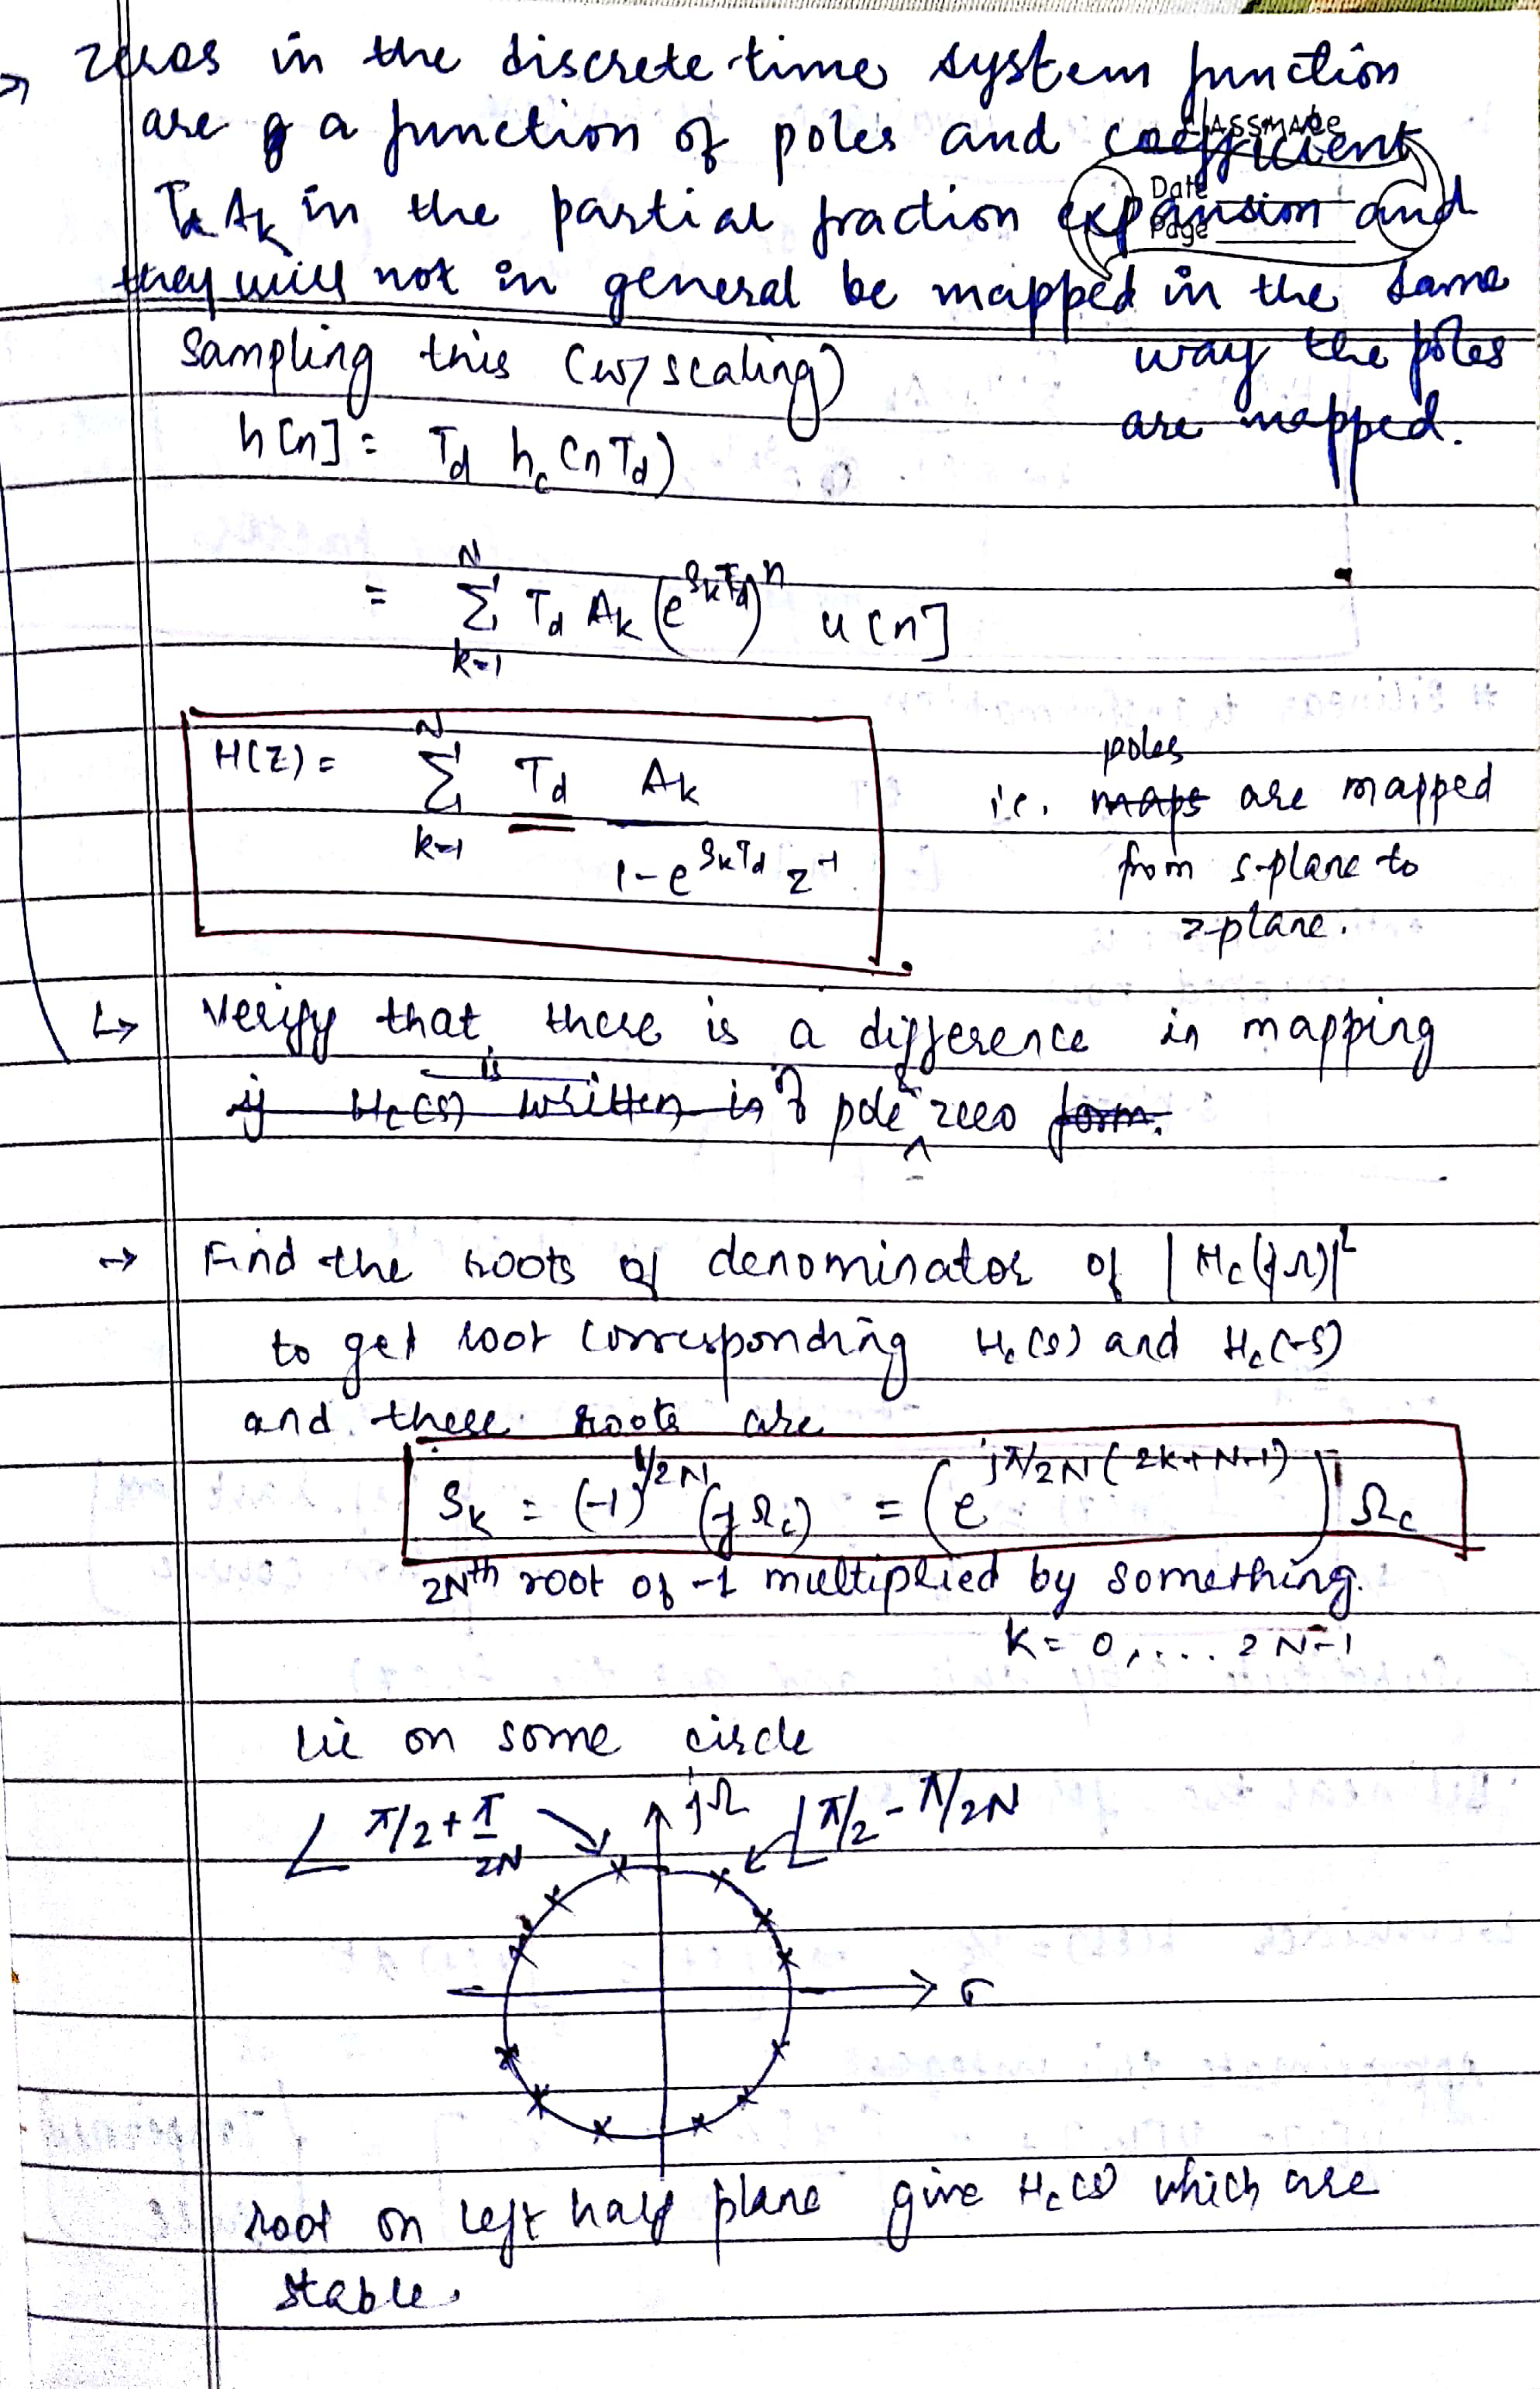 → zeros in the discrete-time system function
are a function of poles and coefficient
classmate
Date
Page
Td Ak in the partial fraction expansion and
they will not in general be mapped in the same
way the poles
are mapped.
Sampling this (w/ scaling)
h[n] = Td hc(nTd)
= N Σ k=1 Td Ak (e^{skTd})^n u[n]
H(z) = N Σ k=1 Td Ak / (1 - e^{skTd} z^{-1})
poles
i.e. maps are mapped
from s-plane to
z-plane.
↳ Verify that there is a difference in mapping
is
if Hc(s) written in of pole & zero form.
→ Find the roots of denominator of |Hc(jΩ)|²
to get root corresponding Hc(s) and Hc(-s)
and these roots are
sk = (-1)^{1/2N} (jΩc) = (e^{jπ/2N(2k+N-1)}) Ωc
2Nth root of -1 multiplied by something.
k = 0,.... 2N-1
lie on some circle
jΩ
∠ π/2 + π/2N
∠ π/2 - π/2N
σ
root on left half plane give Hc(s) which are
stable.